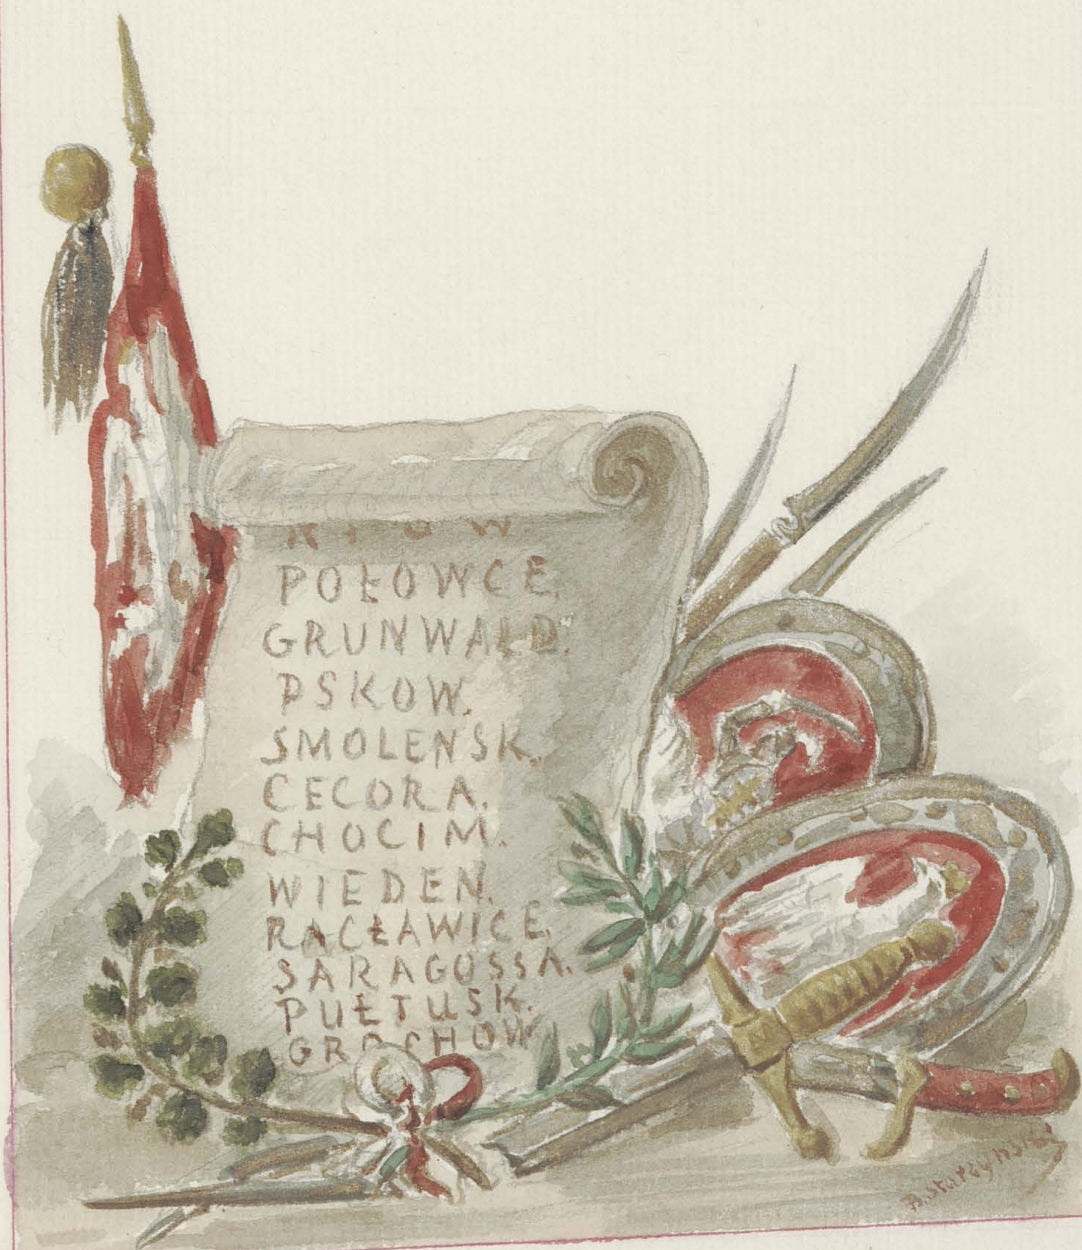 KIOW
POŁOWCE.
GRUNWALD.
PSKOW.
SMOLEŃSK.
CECORA.
CHOCIM.
WIEDEŃ.
RACŁAWICE.
SARAGOSSA.
PUŁTUSK.
GROCHOW
B. Starzyński